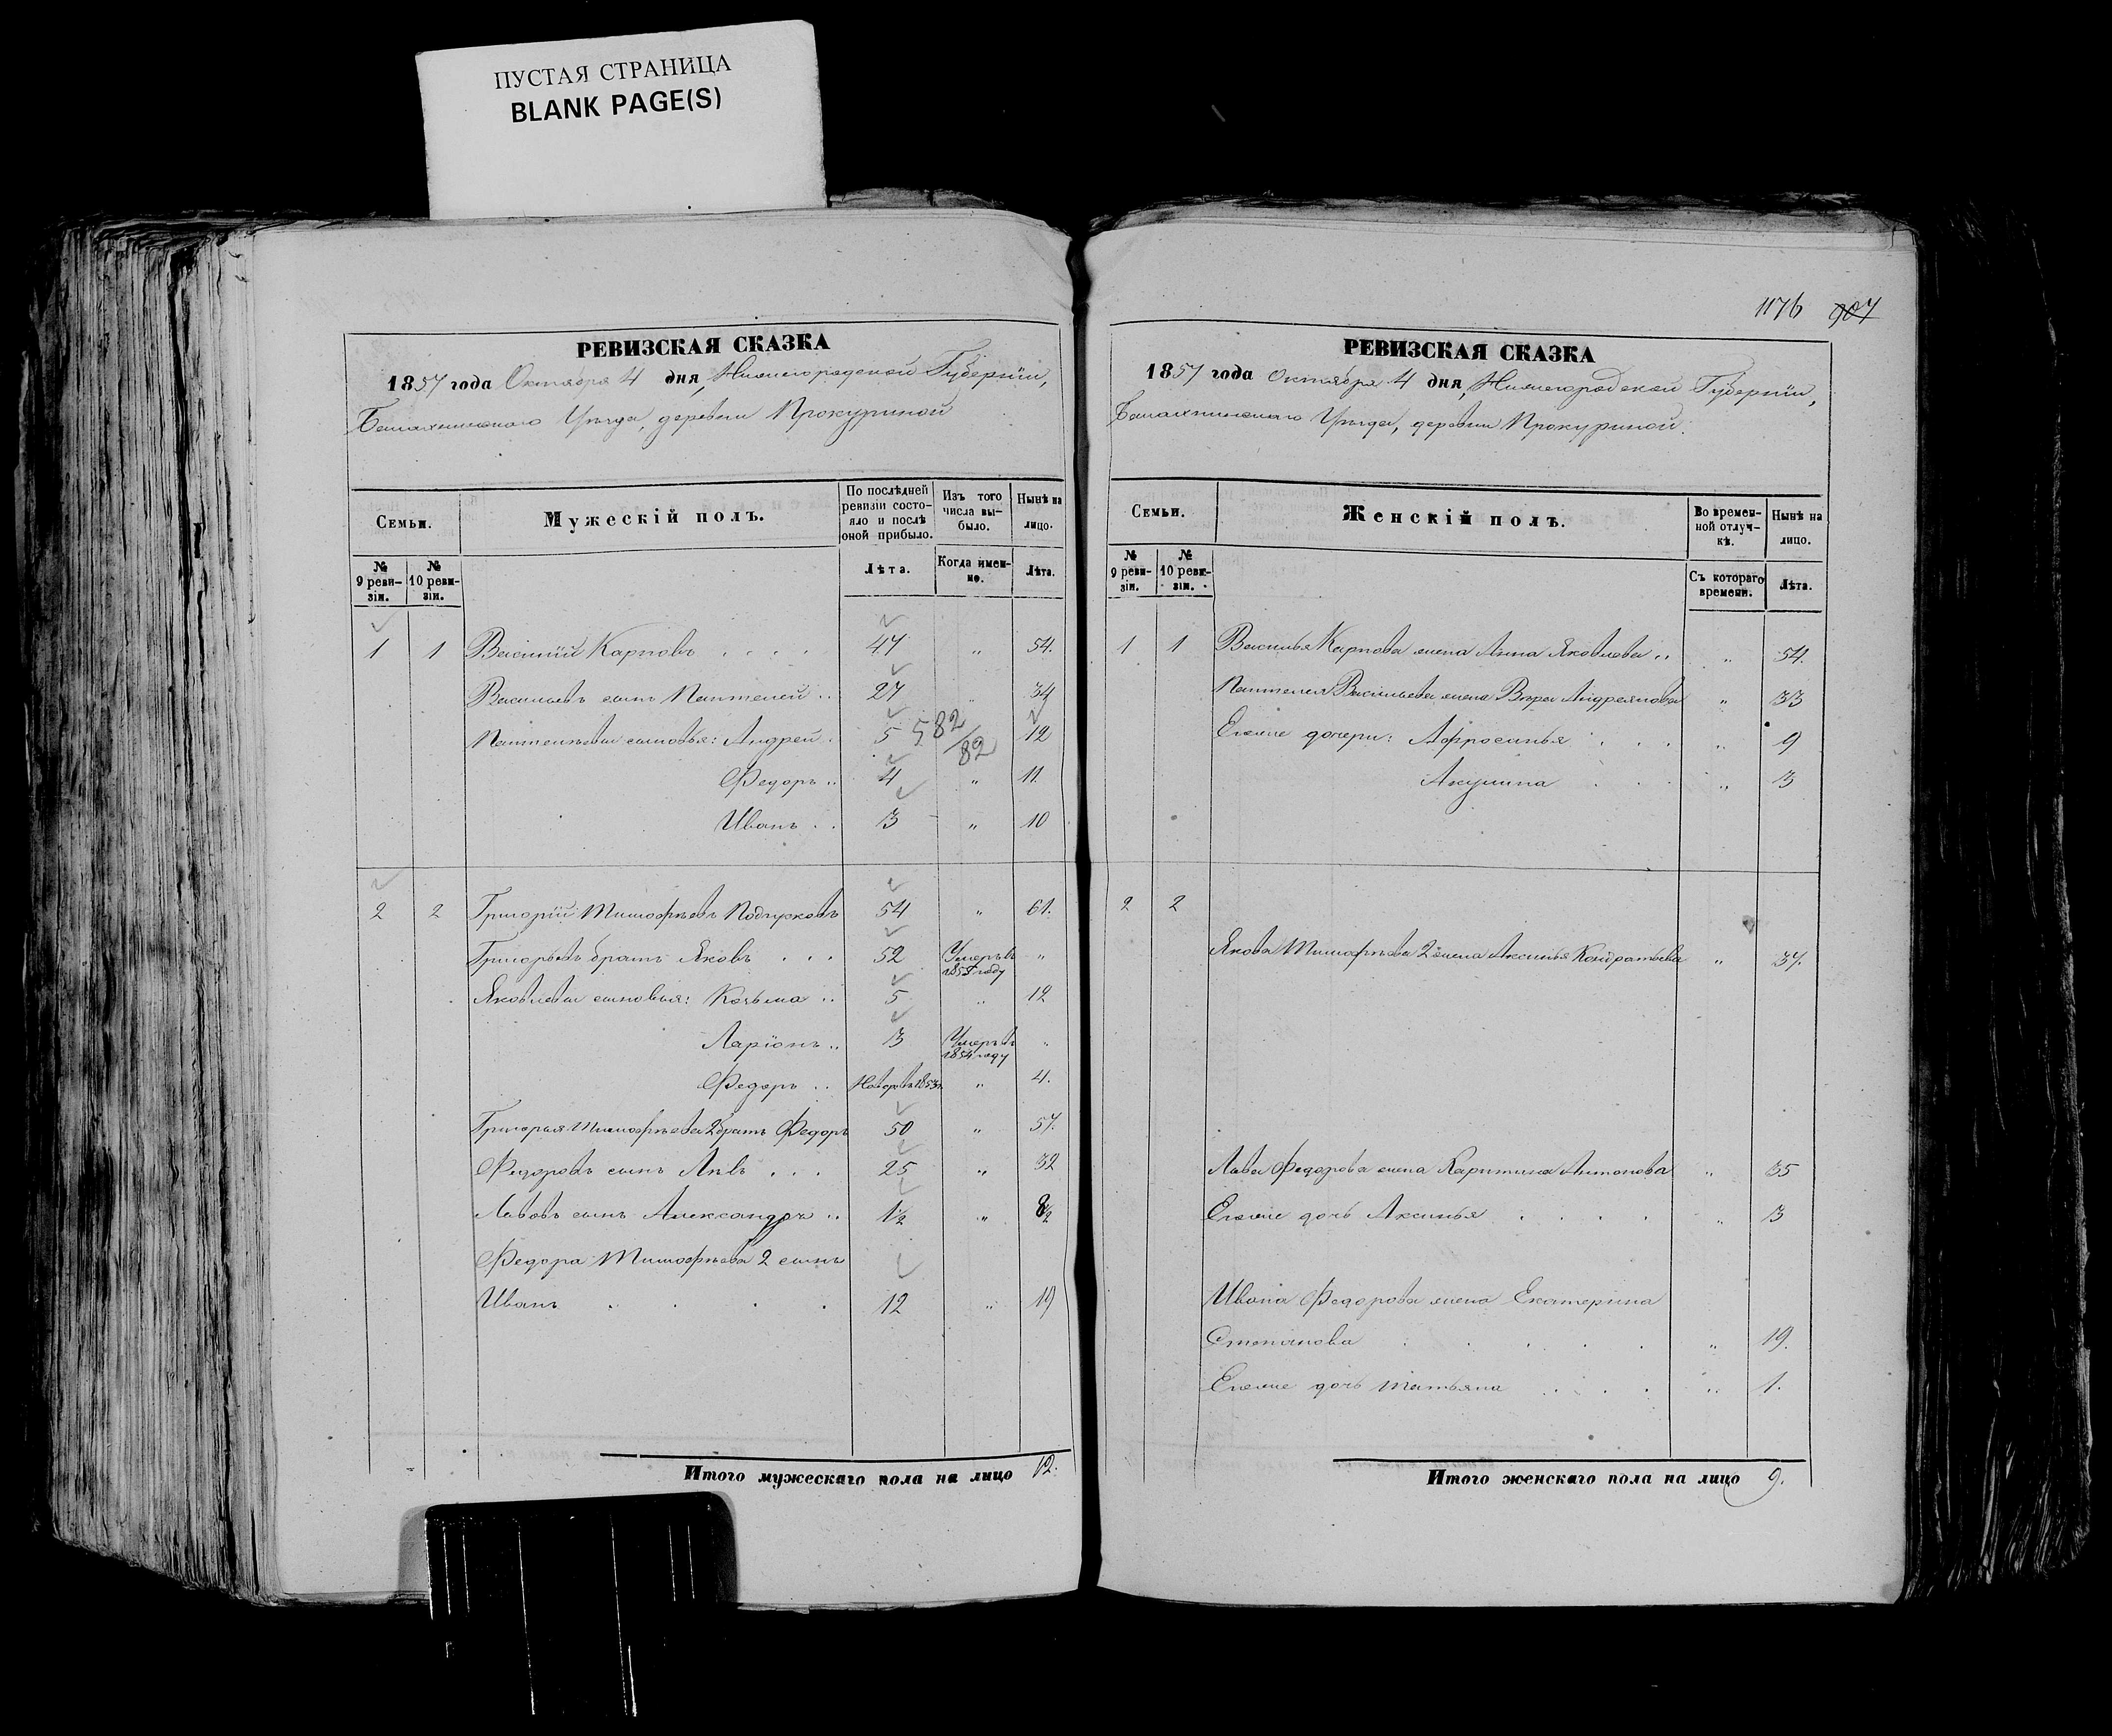 ПУСТАЯ СТРАНИЦА
BLANK PAGE(S)
РЕВИЗСКАЯ СКАЗКА
1857 года Октября 4 дня, Нижегородской Губерніи,
Балахнинскаго Уѣзда, деревни Прокуриной
Семьи.
Мужескій полъ.
По послѣдней ревизіи состояло и послѣ оной прибыло.
Изъ того числа выбыло.
Нынѣ на лицо.
№ 9 ревизіи.
№ 10 ревизіи.
Лѣта.
Когда именно.
Лѣта.
1 1 Василий Карповъ . . . . 47 „ 54.
Васильевъ сынъ Пантелей .. 27 „ 34
Пантелѣевы сыновья: Андрей . 5 582/82 12
Федоръ .. 4 „ 11
Иванъ . . 3 „ 10
2 2 Григорій Тимофѣевъ 54 „ 61.
Григорьевъ братъ Яковъ . . . 52 Умеръ въ „
году
Яковлевы сыновья: Козьма .. 5 „ 12
Ларіонъ .. 3 Умеръ въ „
1854 году
Федоръ .. Новоро. 1853 „ 4.
Григорья Тимофѣева 2 братъ Федоръ 50 „ 57.
Федоровъ сынъ Левъ . . . 25 „ 32
Львовъ сынъ Александръ .. 1½ „ 8½
Федора Тимофѣева 2 сынъ
Иванъ . . . . 12 „ 19
Итого мужескаго пола на лицо 12.
1176 907
РЕВИЗСКАЯ СКАЗКА
1857 года Октября 4 дня, Нижегородской Губерніи,
Балахнинскаго Уѣзда, деревни Прокуриной.
Семьи.
Женскій полъ.
Во временной отлучкѣ.
Нынѣ на лицо.
№ 9 ревизіи.
№ 10 ревизіи.
Съ котораго времени.
Лѣта.
1 1 Василья Карпова жена Анна Яковлева .. „ 54.
Пантелея Васильева жена Вѣра Андреянова „ 33
Ихъ дочери: Афросинья . . . „ 9
Акулина . . . „ 3
2 2
Якова Тимофѣева 2 жена Аксинья Кондратьева „ 37.
Льва Федорова жена Харитина Антонова „ 35
дочь Аксинья . . . . „ 3
Ивана Федорова жена Екатерина
Степанова . . . . . „ 19.
дочь Татьяна . . . . „ 1.
Итого женскаго пола на лицо 9.